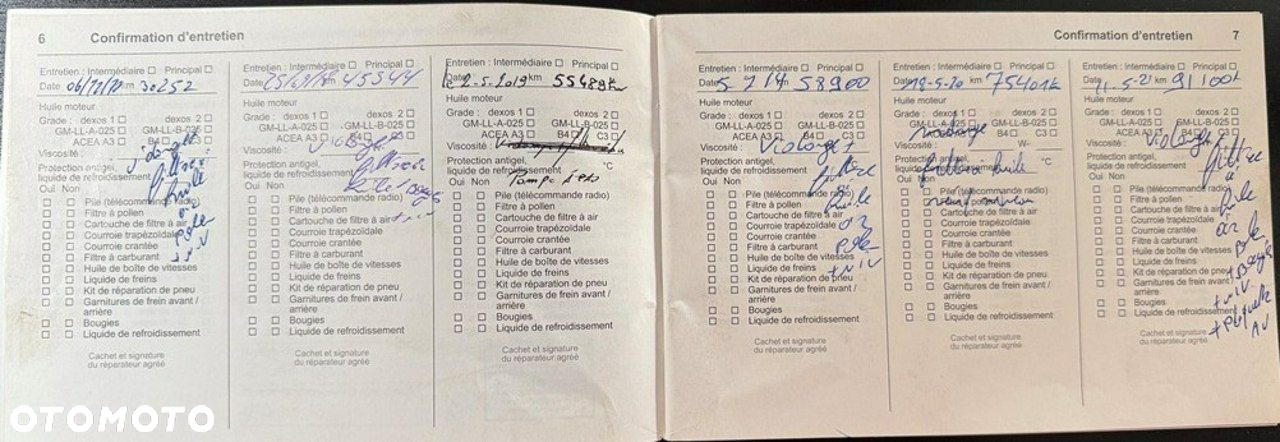 6 Confirmation d'entretien
Entretien : Intermédiaire Principal
Date 06/12/ km 30252
Huile moteur
Grade : dexos 1 dexos 2
GM-LL-A-025 GM-LL-B-025
ACEA A3 B4 C3
Viscosité :
Protection antigel,
liquide de refroidissement
huile
Oui Non
Pile (télécommande radio)
Filtre à pollen
Cartouche de filtre à air
Courroie trapézoïdale
Courroie crantée
Filtre à carburant
Huile de boîte de vitesses
Liquide de freins
Kit de réparation de pneu
Garnitures de frein avant /
arrière
Bougies
Liquide de refroidissement
Cachet et signature
du réparateur agréé
Entretien : Intermédiaire Principal
Date km 45344
Huile moteur
Grade : dexos 1 dexos 2
GM-LL-A-025 GM-LL-B-025
ACEA A3 B4 C3
Viscosité :
Protection antigel,
liquide de refroidissement
Oui Non
Pile (télécommande radio)
Filtre à pollen
Cartouche de filtre à air
Courroie trapézoïdale
Courroie crantée
Filtre à carburant
Huile de boîte de vitesses
Liquide de freins
Kit de réparation de pneu
Garnitures de frein avant /
arrière
Bougies
Liquide de refroidissement
Cachet et signature
du réparateur agréé
Entretien : Intermédiaire Principal
Date 2-5-2019 km 55489
Huile moteur
Grade : dexos 1 dexos 2
GM-LL-A-025 GM-LL-B-025
ACEA A3 B4 C3
Viscosité :
Protection antigel,
liquide de refroidissement °C
Oui Non
Pile (télécommande radio)
Filtre à pollen
Cartouche de filtre à air
Courroie trapézoïdale
Courroie crantée
Filtre à carburant
Huile de boîte de vitesses
Liquide de freins
Kit de réparation de pneu
Garnitures de frein avant /
arrière
Bougies
Liquide de refroidissement
Cachet et signature
du réparateur agréé
Confirmation d'entretien 7
Entretien : Intermédiaire Principal
Date km 58900
Huile moteur
Grade : dexos 1 dexos 2
GM-LL-A-025 GM-LL-B-025
ACEA A3 B4 C3
Viscosité :
Protection antigel,
liquide de refroidissement
Oui Non
Pile (télécommande radio)
Filtre à pollen
Cartouche de filtre à air
Courroie trapézoïdale
Courroie crantée
Filtre à carburant
Huile de boîte de vitesses
Liquide de freins
Kit de réparation de pneu
Garnitures de frein avant /
arrière
Bougies
Liquide de refroidissement
Cachet et signature
du réparateur agréé
Entretien : Intermédiaire Principal
Date -5-20 km 75401
Huile moteur
Grade : dexos 1 dexos 2
GM-LL-A-025 GM-LL-B-025
B4 C3
Viscosité : W-
Protection antigel,
liquide de refroidissement °C
huile
Oui Non
Pile (télécommande radio)
Cartouche de filtre à air
Courroie trapézoïdale
Courroie crantée
Filtre à carburant
Huile de boîte de vitesses
Liquide de freins
Kit de réparation de pneu
Garnitures de frein avant /
arrière
Bougies
Liquide de refroidissement
Cachet et signature
du réparateur agréé
Entretien : Intermédiaire Principal
Date 11-5-21 km 91100
Huile moteur
Grade : dexos 1 dexos 2
GM-LL-A-025 GM-LL-B-025
ACEA A3 B4 C3
Viscosité :
Protection antigel,
liquide de refroidissement
Oui Non
Pile (télécommande radio)
Filtre à pollen
Cartouche de filtre à air
Courroie trapézoïdale
Courroie crantée
Filtre à carburant
Huile de boîte de vitesses
Liquide de freins
Kit de réparation de pneu
Garnitures de frein avant /
arrière
Bougies
Liquide de refroidissement
Cachet et signature
du réparateur agréé
OTOMOTO